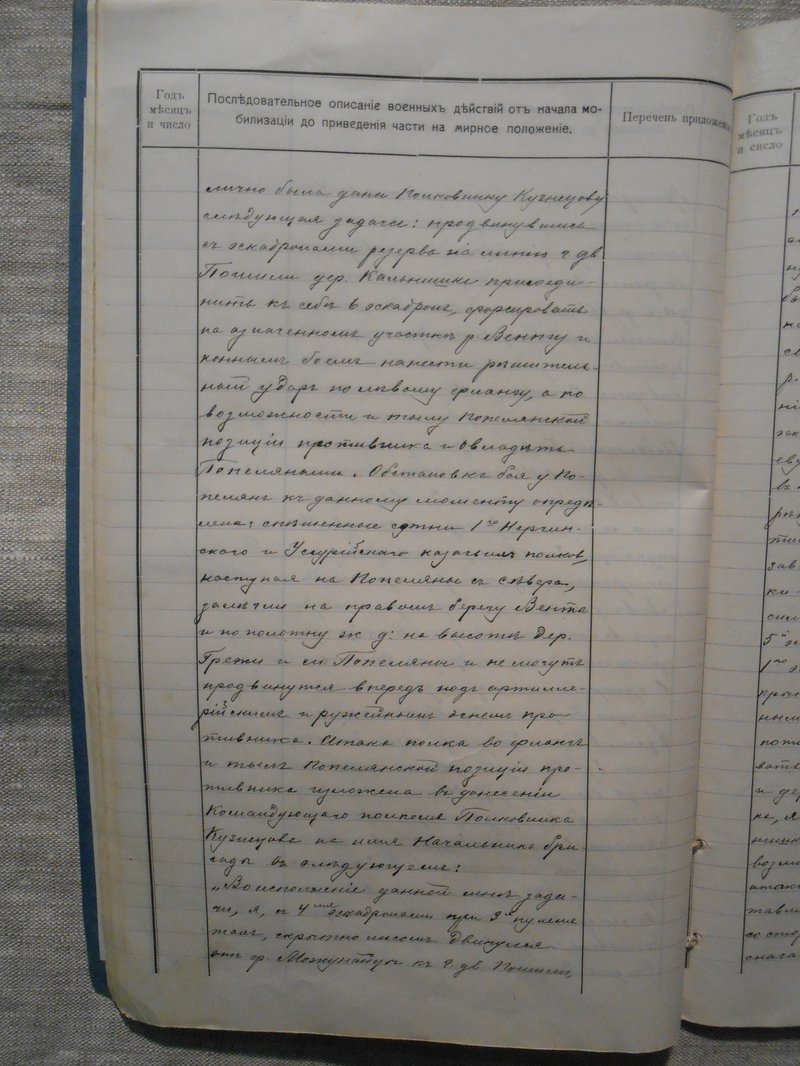 Годъ
мѣсяцъ
и число
Послѣдовательное описаніе военныхъ дѣйствій отъ начала мо-
билизаціи до приведенія части на мирное положеніе.
Перечень приложен
Годъ
мѣсяцъ
и число
лично была дана Полковнику Кузнецову
слѣдующая задача: продвинувшись
съ эскадронами резерва на линію г. дв.
дер. Кальнишки присоеди-
нить къ себѣ 6 эскадронъ, форсировать
на означенномъ участкѣ р. Венту и
коннымъ боемъ нанести рѣшитель-
ный ударъ по лѣвому флангу, а по
возможности и тылу Попелянской
позиціи противника и овладѣть
Попелянами. Обстановка боя у По-
пелянъ къ данному моменту опредѣ-
лена: спѣшенные сотни 1го Нерчин-
ского и Уссурійскаго казачьихъ полков,
наступая на Попеляны съ сѣвера,
залегли на правомъ берегу Вента
и по полотну ж. д: на высотѣ дер.
и м. Попеляны и не могутъ
продвинутся впередъ подъ артилле-
рійскимъ и ружейнымъ огнемъ про-
тивника. Атака полка во флангъ
и тылъ Попелянской позиціи про-
тивника изложена въ донесеніи
Командующаго полкомъ Полковника
Кузнецова на имя Начальника бри-
гады въ слѣдующемъ:
„Во исполненіе данной мнѣ зада-
чи, я, съ 4мя эскадронами при 3х пулеме
тахъ, скрытно лѣсомъ двинулся
отъ ф. къ г. дв.